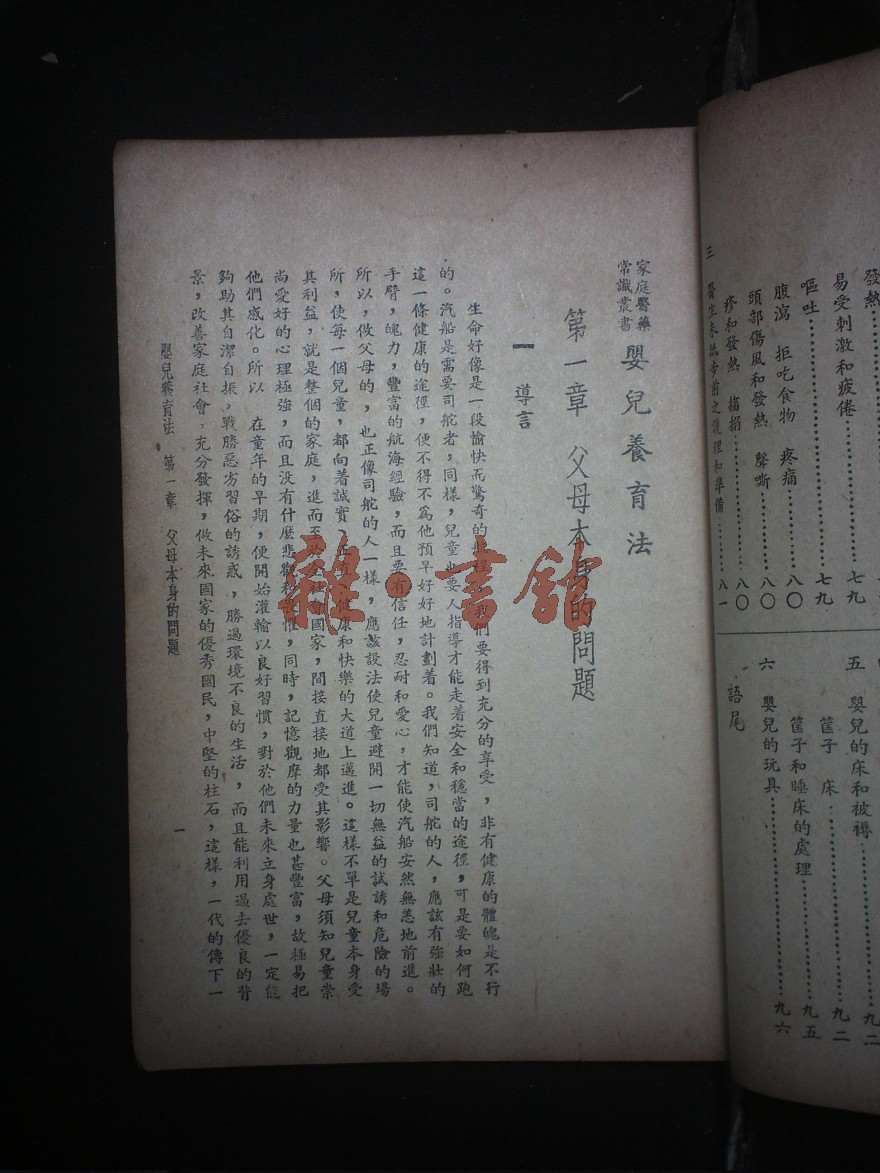 發熱
易受刺激和疲倦…………七九
嘔吐…………七九
腹瀉　拒吃食物　疼痛…………八〇
頭部傷風和發熱　聲嘶…………八〇
疹和發熱　搐搦…………八〇
三　醫生未抵步前之護理和準備…………八一
五　嬰兒的床和被褥…………九二
筐子　床…………九二
筐子和睡床的處理…………九五
六　嬰兒的玩具…………九六
語尾
家庭醫藥
常識叢書
嬰兒養育法
第一章　父母本身的問題
一　導言
生命好像是一段愉快而驚奇的旅程，我們要得到充分的享受，非有健康的體魄是不行
的。汽船是需要司舵者，同樣，兒童也要人指導才能走着安全和穩當的途徑，可是要如何跑
這一條健康的途徑，便不得不爲他預早好好地計劃着。我們知道，司舵的人，應該有強壯的
手臂，魄力，豐富的航海經驗，而且要有信任，忍耐和愛心，才能使汽船安然無恙地前進。
所以，做父母的，也正像司舵的人一樣，應該設法使兒童避開一切無益的試誘和危險的場
所，使每一個兒童，都向着誠實、正直、健康和快樂的大道上邁進。這樣不單是兒童本身受
其利益，就是整個的家庭，進而至於全社會國家，間接直接地都受其影響。父母須知兒童崇
尚愛好的心理極強，而且没有什麼悲觀和畏懼，同時，記憶觀摩的力量也甚豐富，故極易把
他們感化。所以　在童年的早期，便開始灌輸以良好習慣，對於他們未來立身處世，一定能
夠助其自潔自振，戰勝惡劣習俗的誘惑，勝過環境不良的生活，而且能利用過去優良的背
景，改善家庭社會，充分發揮，做未來國家的優秀國民，中堅的柱石，這樣，一代的傳下一
嬰兒養育法　第一章　父母本身的問題
一
雜·書館